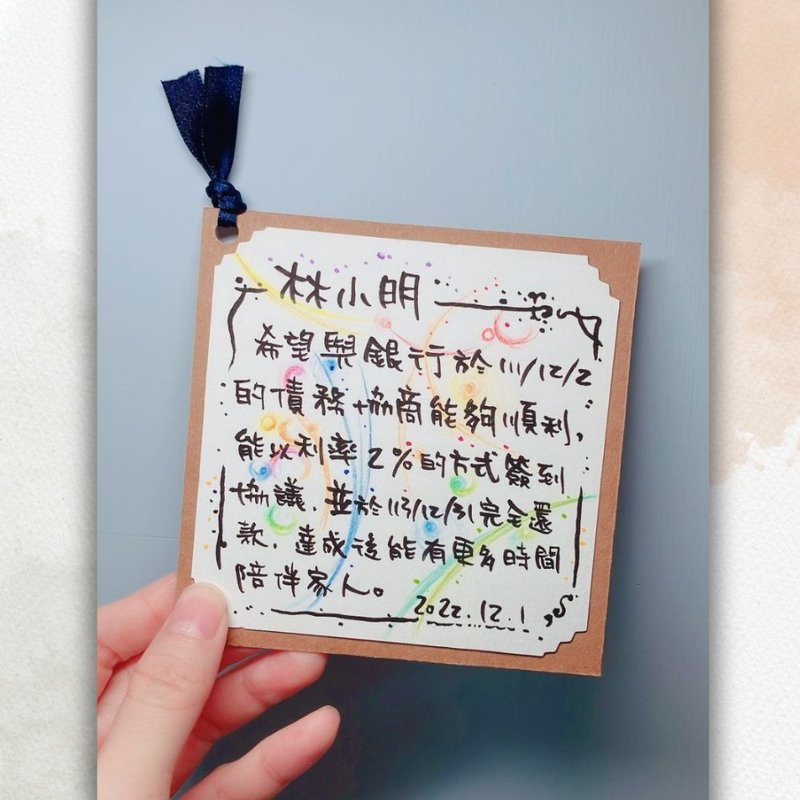 林小明
希望與銀行於111/12/2
的債務協商能夠順利,
能以利率2%的方式簽到
協議,並於113/12/31完全還
款,達成後能有更多時間
陪伴家人。
2022.12.1